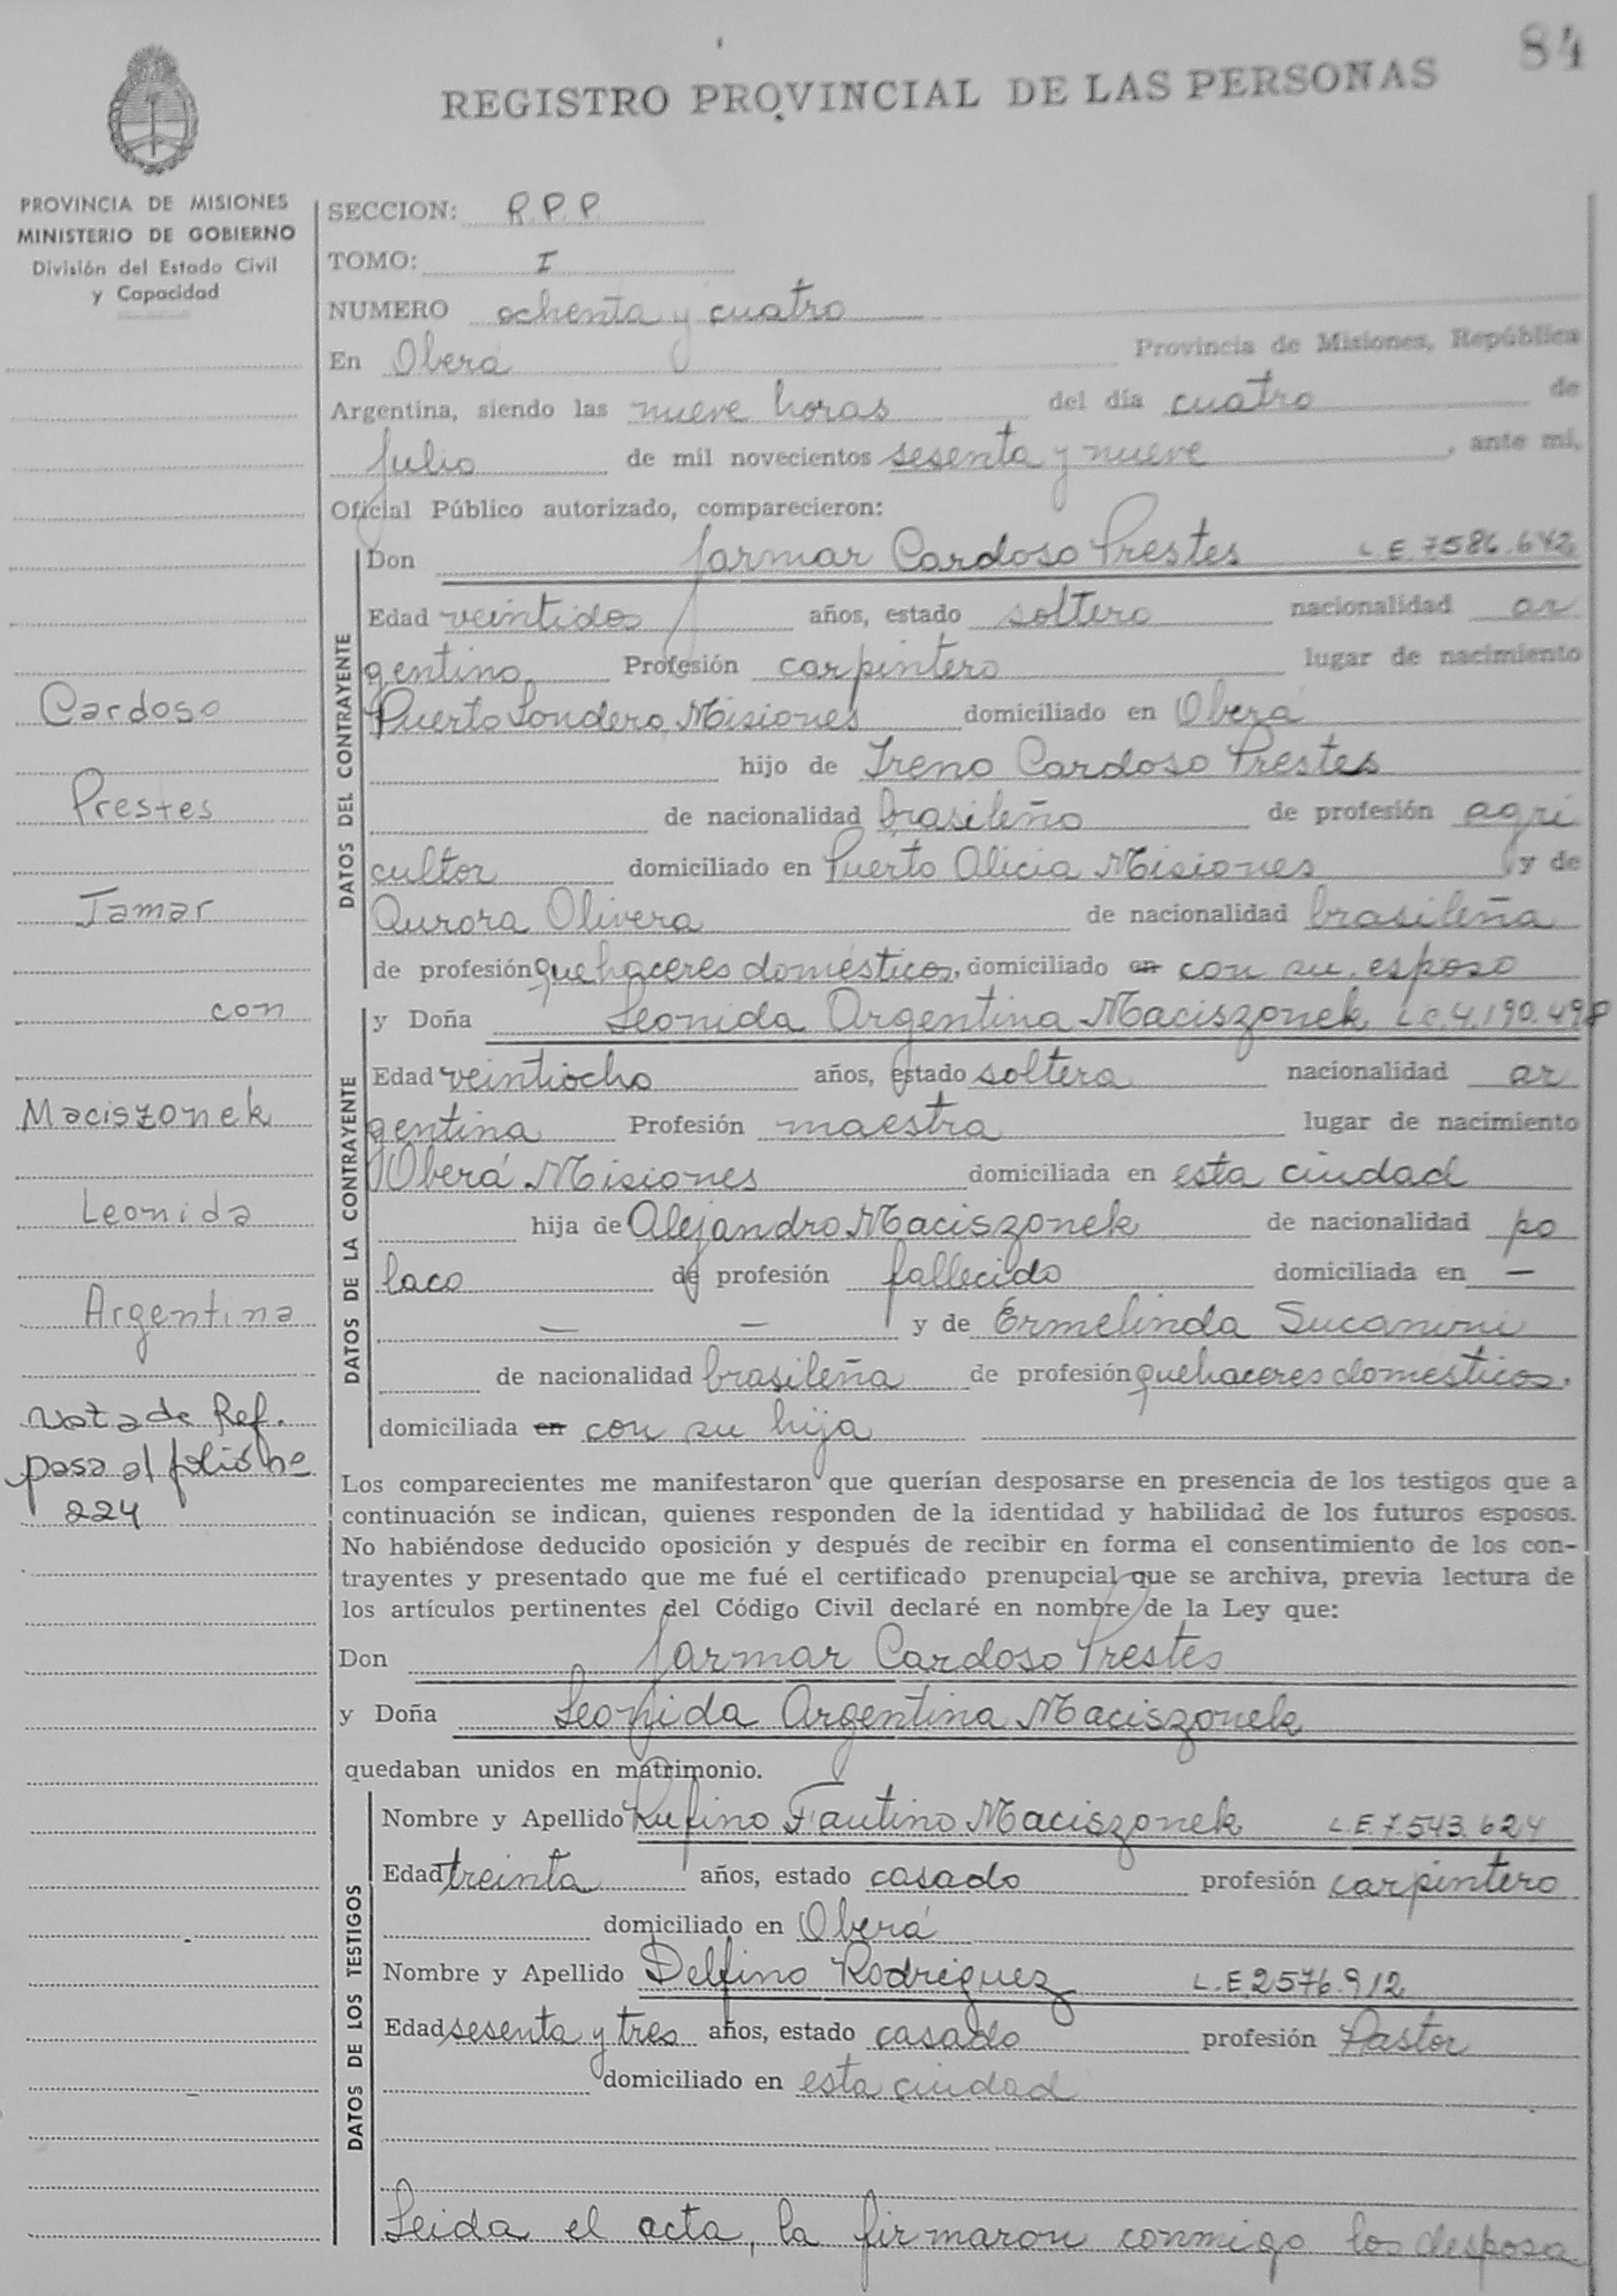 84
REGISTRO PROVINCIAL DE LAS PERSONAS
PROVINCIA DE MISIONES
MINISTERIO DE GOBIERNO
División del Estado Civil
y Capacidad
SECCION: R.P.P.
TOMO: I
NUMERO ochenta y cuatro
En Oberá Provincia de Misiones, República
Argentina, siendo las nueve horas del día cuatro de
Julio de mil novecientos sesenta y nueve, ante mí,
Oficial Público autorizado, comparecieron:
DATOS DEL CONTRAYENTE
Don Jarmar Cardoso Prestes L.E. 7586.642
Edad veintidos años, estado soltero nacionalidad ar
gentino Profesión carpintero lugar de nacimiento
Puerto Londero, Misiones domiciliado en Oberá
hijo de Ireno Cardoso Prestes
de nacionalidad brasileño de profesión agri
cultor domiciliado en Puerto Alicia Misiones y de
Aurora Olivera de nacionalidad brasileña
de profesión quehaceres domésticos, domiciliado en con su esposo
DATOS DE LA CONTRAYENTE
y Doña Leonida Argentina Maciszonek L.C. 4.190.498
Edad veintiocho años, estado soltera nacionalidad ar
gentina Profesión maestra lugar de nacimiento
Oberá Misiones domiciliada en esta ciudad
hija de Alejandro Maciszonek de nacionalidad po
laco de profesión fallecido domiciliada en —
— — y de Ermelinda Sucanoni
de nacionalidad brasileña de profesión quehaceres domesticos.
domiciliada en con su hija
Cardoso
Prestes
Jamar
con
Maciszonek
Leonida
Argentina
Nota de Ref.
pasa al folio nº
224
Los comparecientes me manifestaron que querían desposarse en presencia de los testigos que a
continuación se indican, quienes responden de la identidad y habilidad de los futuros esposos.
No habiéndose deducido oposición y después de recibir en forma el consentimiento de los con-
trayentes y presentado que me fué el certificado prenupcial que se archiva, previa lectura de
los artículos pertinentes del Código Civil declaré en nombre de la Ley que:
Don Jarmar Cardoso Prestes
y Doña Leonida Argentina Maciszonek
quedaban unidos en matrimonio.
DATOS DE LOS TESTIGOS
Nombre y Apellido Rufino Fautino Maciszonek L.E. 7.543.624
Edad treinta años, estado casado profesión carpintero
domiciliado en Oberá
Nombre y Apellido Delfino Rodriguez L.E. 2576.912
Edad sesenta y tres años, estado casado profesión Pastor
domiciliado en esta ciudad
Leida el acta, la firmaron conmigo los desposa